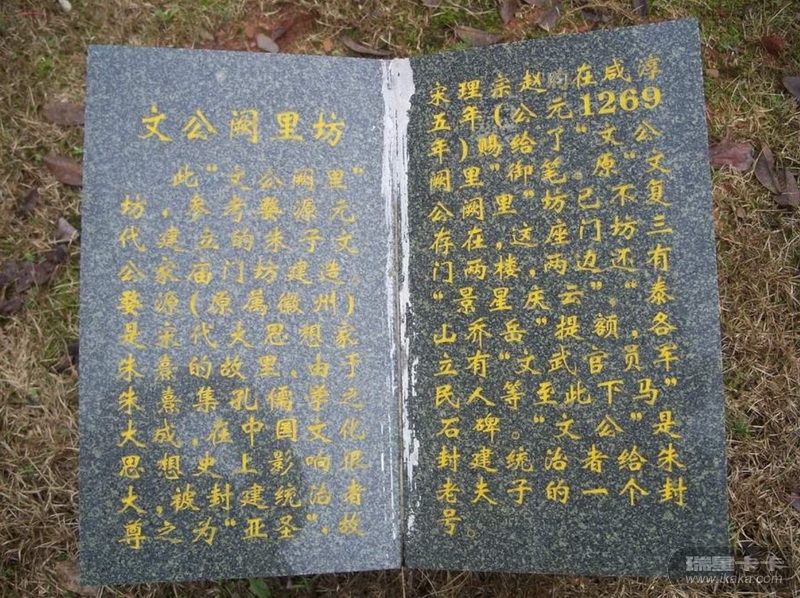 文公阙里坊
此“文公阙里”
坊，参考婺源元
代建立的朱子文
公家庙门坊建造。
婺源（原属徽州）
是宋代大思想家
朱熹的故里，由于
朱熹集孔儒学之
大成，在中国文化
思想史上影响很
大，被封建统治者
尊之为“亚圣”，故
宋理宗赵昀在咸淳
五年（公元1269
年）赐给了“文公
阙里”御笔。原“文
公阙里”坊已不复
存在，这座门坊三
门两楼，两边还有
“景星庆云”。“泰
山乔岳”提额，各
立有“文武官员军
民人等至此下马”
石碑。“文公”是
封建统治者给朱
老夫子的一个封
号。
瑞星卡卡
www.ikaka.com